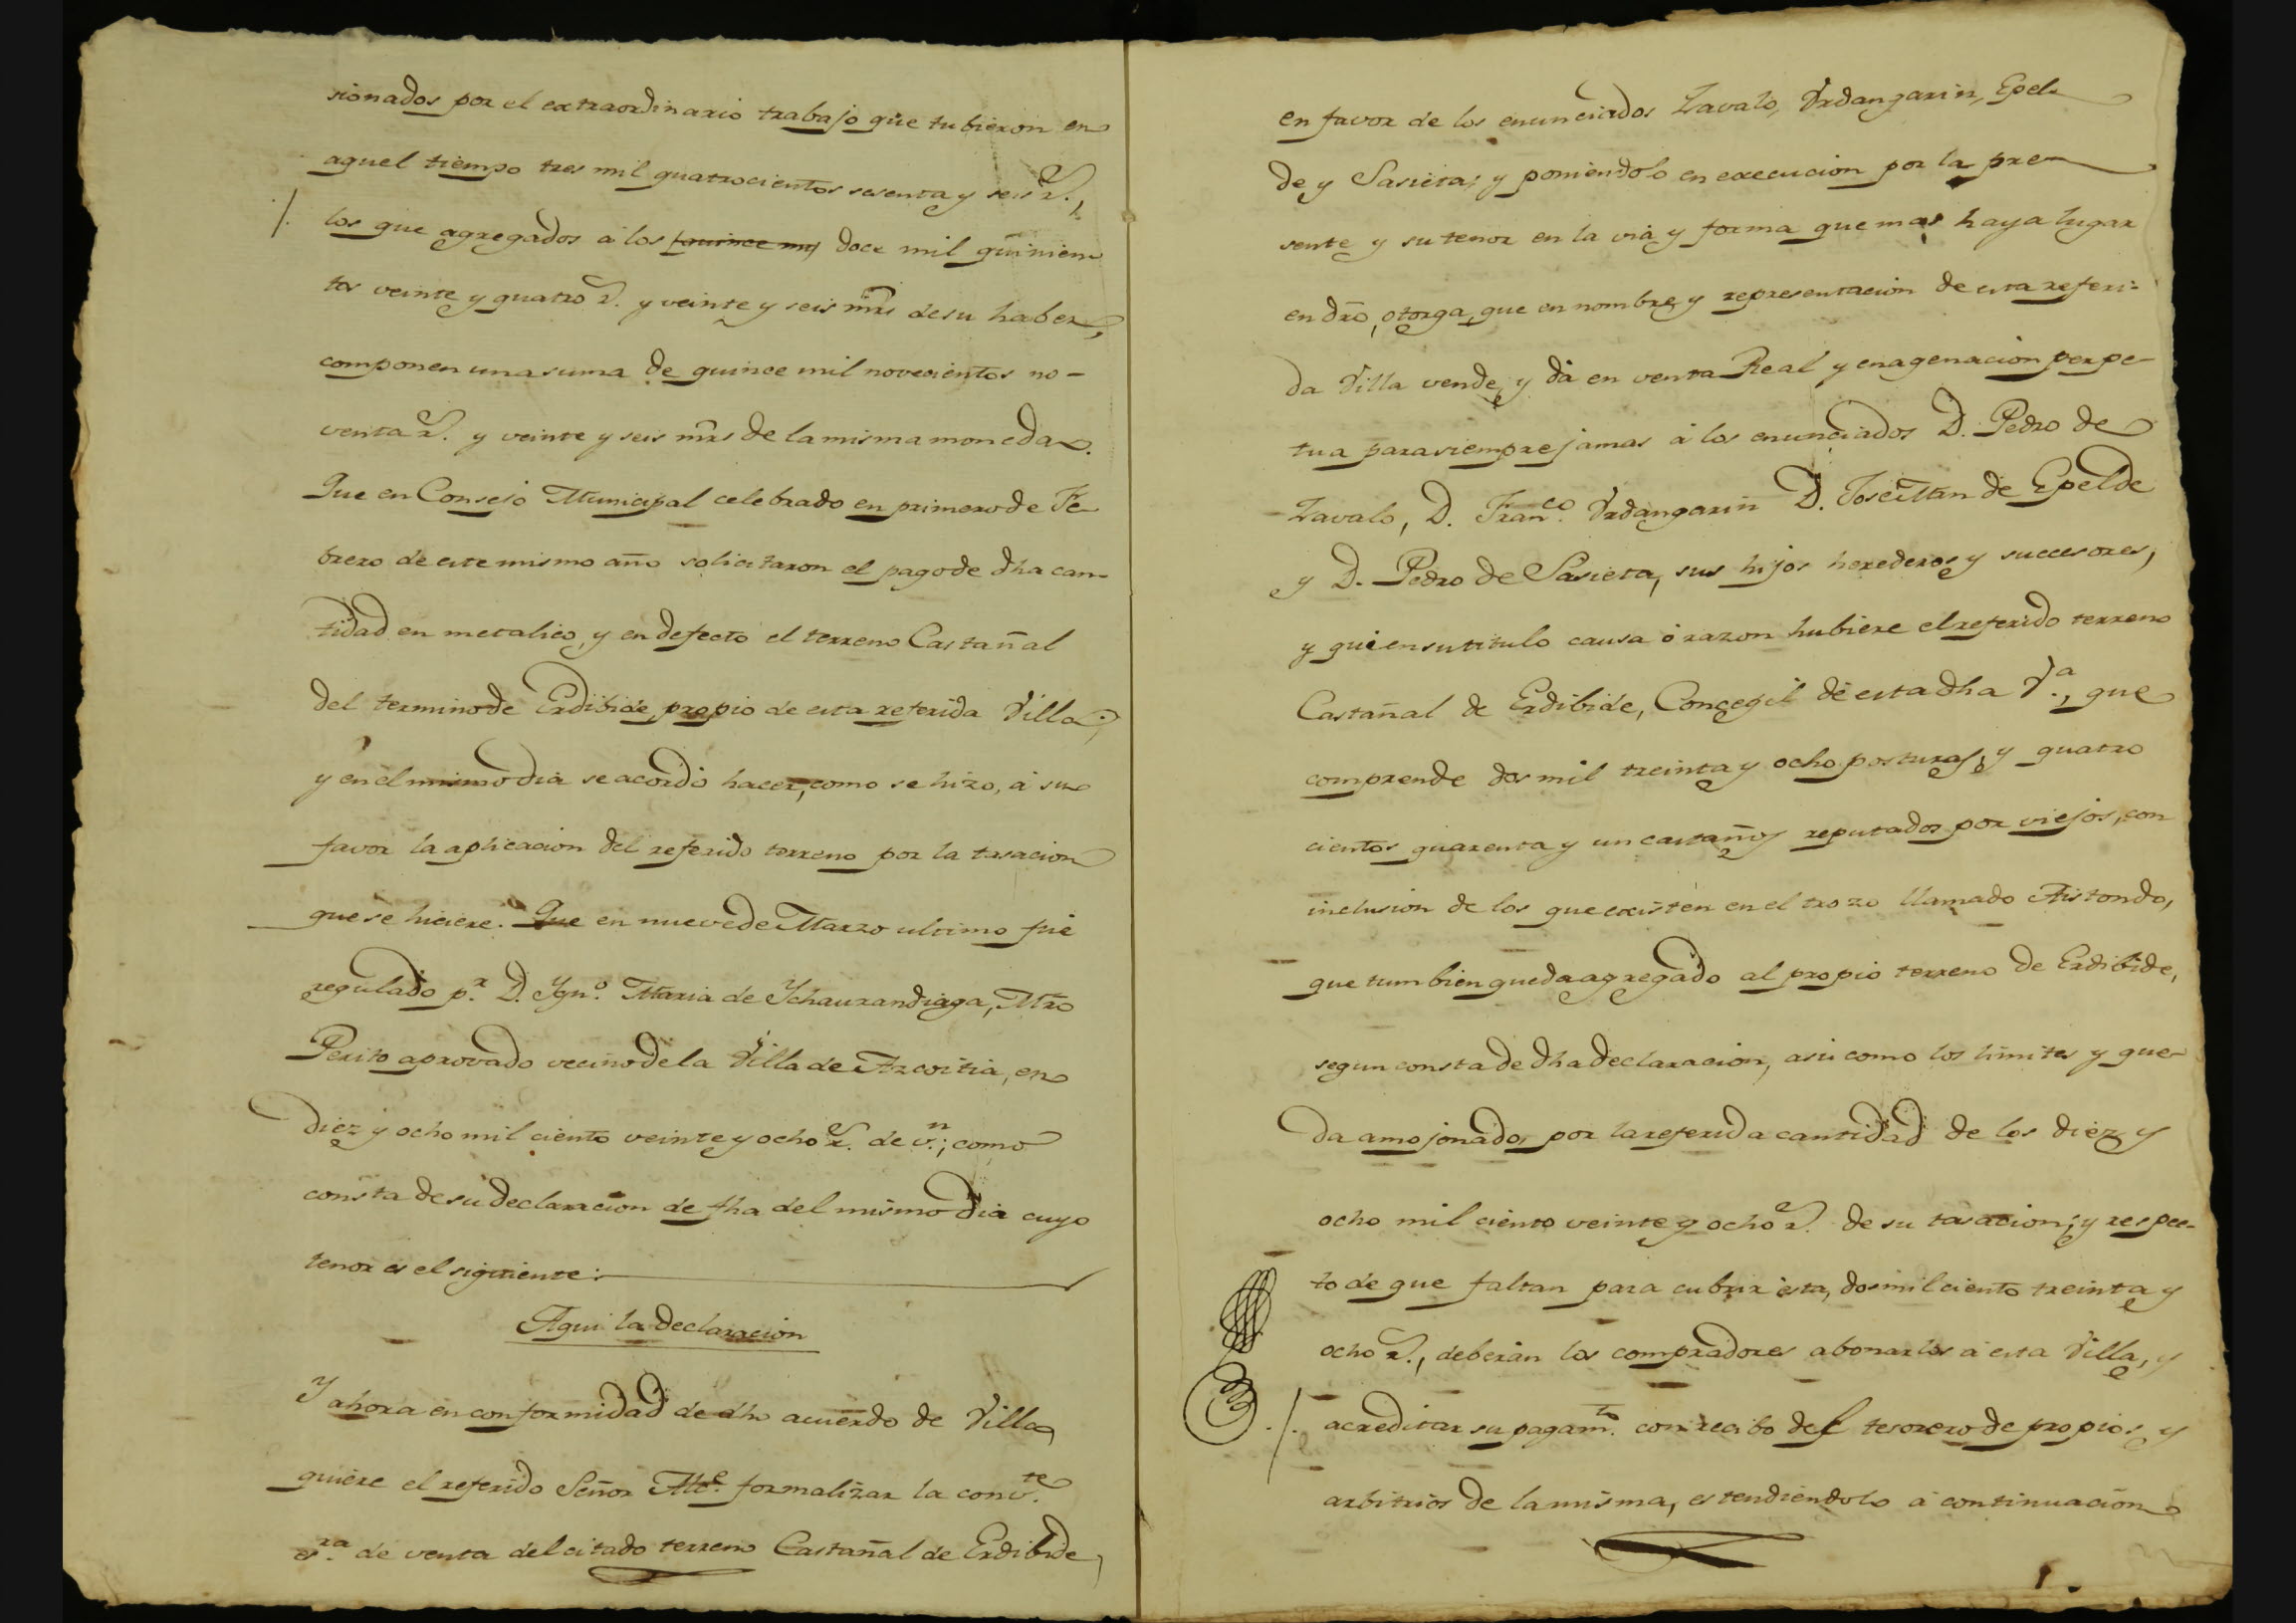 sionados por el extraordinario trabajo que tubieron en
aquel tiempo tres mil quatrocientos sesenta y seis r.^s,
los que agregados á los quince mil doce mil quinien
tos veinte y quatro r.^s y veinte y seis mrs de su haber,
componen una suma de quince mil novecientos no-
venta r.^s y veinte y seis mrs de la misma moneda.
Que en Consejo Municipal celebrado en primero de Fe-
brero de este mismo año solicitaron el pago de dha can-
tidad en metalico, y en defecto el terreno Castañal
del termino de Erdibide, propio de esta referida Villa;
y en el mismo dia se acordó hacer, como se hizo, á su
favor la aplicacion del referido terreno por la tasacion
que se hiciere. Que en nueve de Marzo ultimo fué
regulado p.^r D. Ygn.^o Maria de Ychaurandiaga, Mro
Perito aprovado vecino de la Villa de Azcoitia, en
diez y ocho mil ciento veinte y ocho r.^s de v.^n; como
consta de su declaracion de fha del mismo dia cuyo
tenor es el siguiente:
Aqui la declaracion
Y ahora en conformidad de dho acuerdo de Villa
quiere el referido Señor Alc.^e formalizar la conv.^te
es.^ra de venta del citado terreno Castañal de Erdibide,
en favor de los enunciados Zavalo, Vrdangarin, Epel-
de y Sasieta; y poniendolo en execucion por la pre-
sente y su tenor en la via y forma que mas haya lugar
en dro, otorga, que en nombre y representacion de esta referi-
da Villa vende, y dá en venta Real y enagenacion perpe-
tua para siempre jamas á los enunciados D. Pedro de
Zavalo, D. Fran.^co Vrdangarin D. José Man de Epelde
y D. Pedro de Sasieta, sus hijos herederos y succesores,
y quien su titulo causa ó razon hubiere el referido terreno
Castañal de Erdibide, Concegil de esta dha V.^a, que
comprende dos mil treinta y ocho posturas, y quatro
cientos quarenta y un castaños reputados por viejos, con
inclusion de los que existen en el trozo llamado Aistondo,
que tambien queda agregado al propio terreno de Erdibide,
segun consta de dha declaracion, asi como los limites y que-
da amojonado, por la referida cantidad de los diez y
ocho mil ciento veinte y ocho r.^s de su tasacion; y respec-
to de que faltan para cubrir esta, dos mil ciento treinta y
ocho r.^s, deberán los compradores abonarlos á esta Villa, y
acreditar su pagam.^to con recibo del tesorero de propios, y
arbitrios de la misma, estendiendolo á continuacion